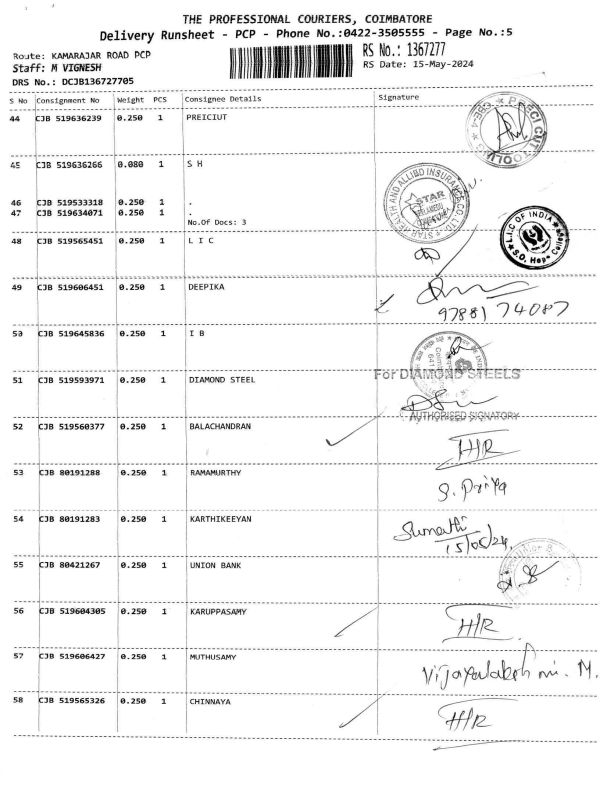 THE PROFESSIONAL COURIERS, COIMBATORE
Delivery Runsheet - PCP - Phone No.:0422-3505555 - Page No.:5
Route: KAMARAJAR ROAD PCP
RS No.: 1367277
Staff: M VIGNESH
RS Date: 15-May-2024
DRS No.: DCJB136727705
S No Consignment No Weight PCS Consignee Details Signature
44 CJB 519636239 0.250 1 PREICIUT
PRECI CUT TOOLING
45 CJB 519636266 0.080 1 S H
STAR HEALTH AND ALLIED INSURANCE CO. LTD.
STAR
46 CJB 519533318 0.250 1 .
47 CJB 519634071 0.250 1 .
No.Of Docs: 3
L.I.C OF INDIA
S.O. Hope College
48 CJB 519565451 0.250 1 L I C
49 CJB 519606451 0.250 1 DEEPIKA
9788174087
50 CJB 519645836 0.250 1 I B
51 CJB 519593971 0.250 1 DIAMOND STEEL
For DIAMOND STEELS
AUTHORISED SIGNATORY
52 CJB 519560377 0.250 1 BALACHANDRAN
H/R
53 CJB 80191288 0.250 1 RAMAMURTHY
S. Priya
54 CJB 80191283 0.250 1 KARTHIKEEYAN
Sumathi
15/05/24
55 CJB 80421267 0.250 1 UNION BANK
56 CJB 519604305 0.250 1 KARUPPASAMY
H/R
57 CJB 519606427 0.250 1 MUTHUSAMY
Vijayalakshmi. M.
58 CJB 519565326 0.250 1 CHINNAYA
H/R